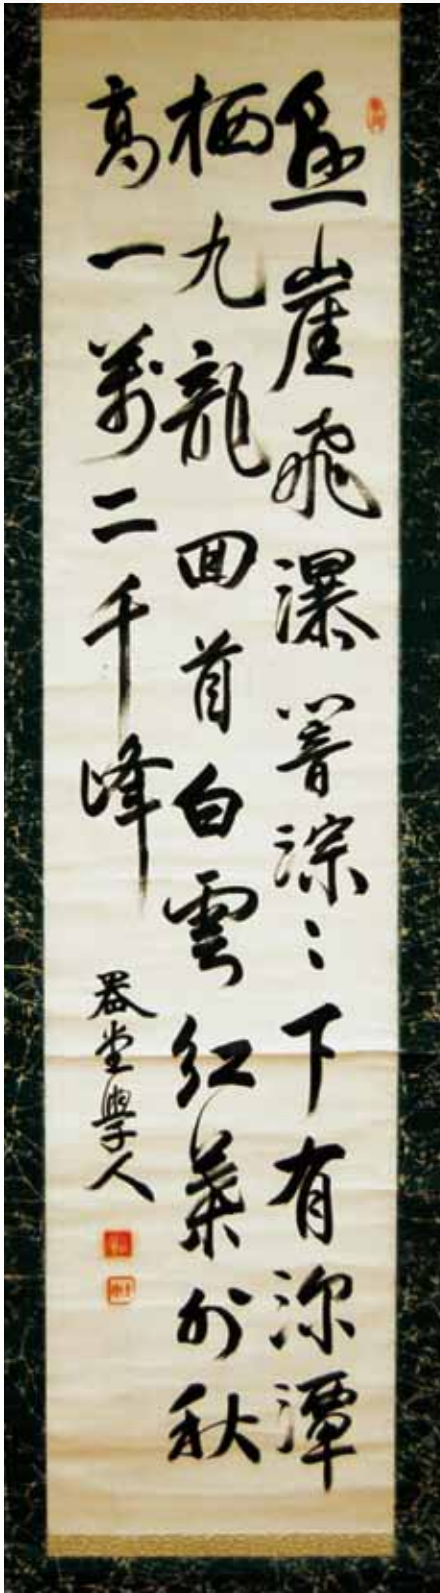 懸崖飛瀑響淙〻下有深潭
栖九龍回首白雲紅葉外秋
高一萬二千峰
器堂學人